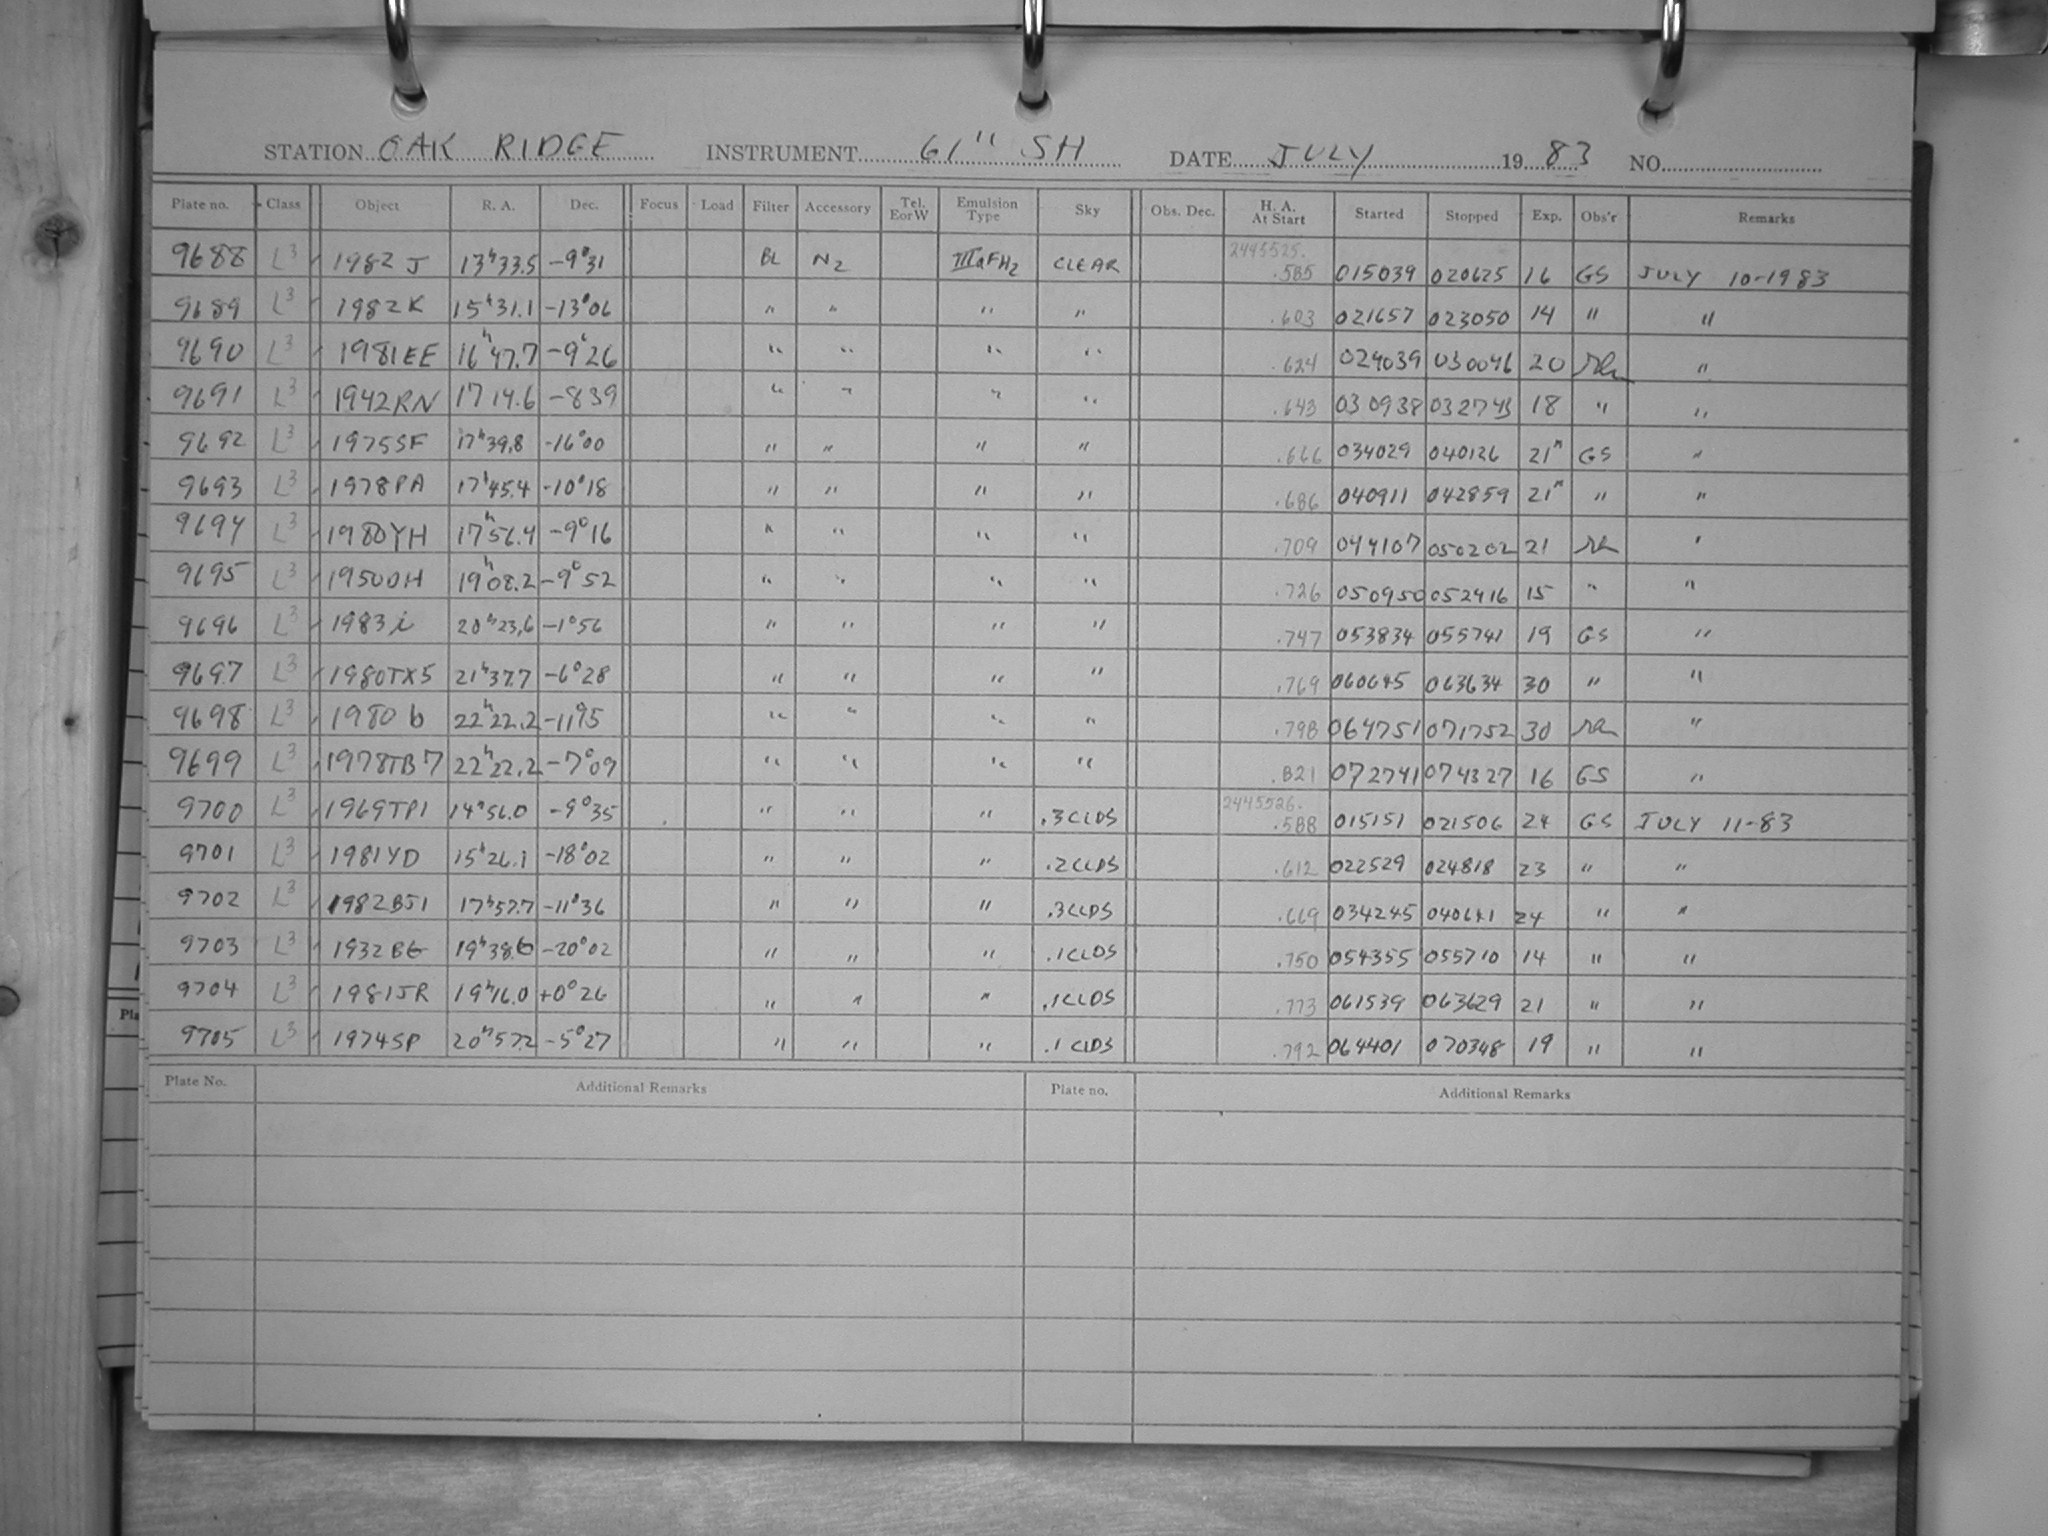 STATION OAK RIDGE INSTRUMENT 61" SH DATE JULY 1983 NO.
Plate no. Class Object R. A. Dec. Focus Load Filter Accessory Tel. E or W Emulsion Type Sky Obs. Dec. H. A. At Start Started Stopped Exp. Obs'r Remarks
9688 L3 1982 J 13h33.5 -9°31 BL N2 IIIaFH2 CLEAR 2445525. .585 015039 020625 16 GS JULY 10-1983
9689 L3 1982K 15h31.1 -13°06 " " " " .603 021657 023050 14 " "
9690 L3 1981EE 16h47.7 -9°26 " " " " .624 024039 030046 20 "
9691 L3 1942RN 17 14.6 -839 " " " " .643 030938 032743 18 " "
9692 L3 1975SF 17h39.8 -16°00 " " " " .666 034029 040126 21m GS "
9693 L3 1978PA 17h45.4 -10°18 " " " " .686 040911 042859 21m " "
9694 L3 1980YH 17h56.4 -9°16 " " " " .709 044107 050202 21 "
9695 L3 1950DH 19h08.2 -9°52 " " " " .726 050950 052416 15 " "
9696 L3 1983i 20h23.6 -1°56 " " " " .747 053834 055741 19 GS "
9697 L3 1980TX5 21h37.7 -6°28 " " " " .769 060645 063634 30 " "
9698 L3 1980 b 22h22.2 -11°95 " " " " .798 064751 071752 30 "
9699 L3 1978TB7 22h22.2 -7°09 " " " " .821 072741 074327 16 GS "
9700 L3 1969TP1 14h56.0 -9°35 " " " .3CLDS 2445526. .588 015151 021506 24 GS JULY 11-83
9701 L3 1981YD 15h26.1 -18°02 " " " .2CLDS .612 022529 024818 23 " "
9702 L3 1982BJ1 17h57.7 -11°36 " " " .3CLDS .669 034245 040641 24 " "
9703 L3 1932BG 19h38.6 -20°02 " " " .1CLDS .750 054355 055710 14 " "
9704 L3 1981JR 19h16.0 +0°26 " " " .1CLDS .773 061539 063629 21 " "
9705 L3 1974SP 20h57.2 -5°27 " " " .1 CLDS .792 064401 070348 19 " "
Plate No. Additional Remarks Plate no. Additional Remarks
Pla